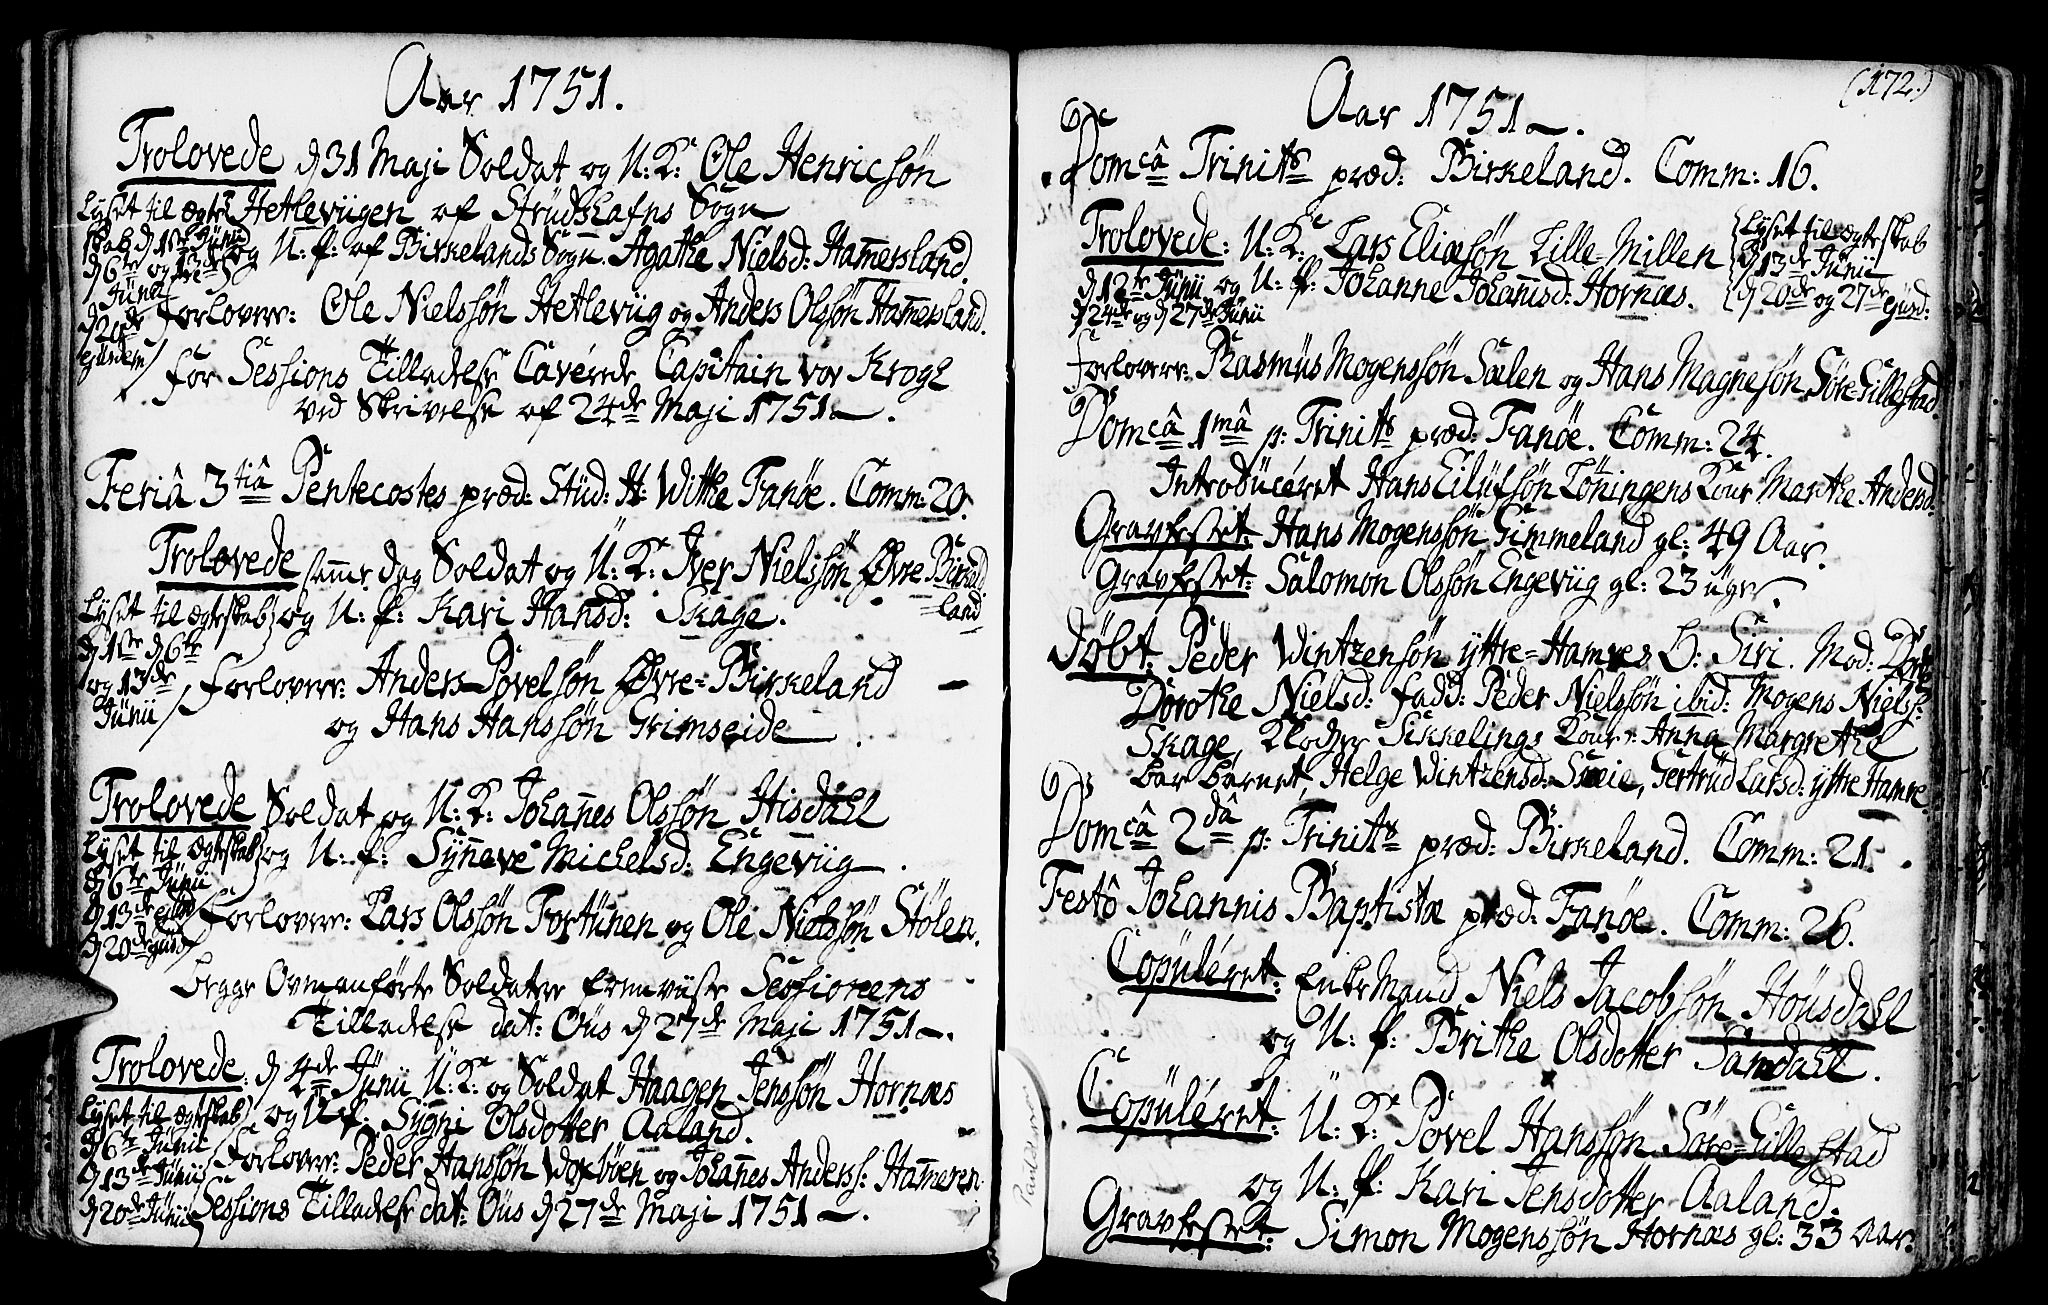 Aar 1751.
Trolovede d 31 Maji Soldat og U: K: Ole Henricsøn
Hetleviigen af Strudshafns Sogn
og U: P: af Birkelands Sogn. Agathe Nielsd: Ham̄ersland.
Lyset til Ægte-
skab d 1ste Junii
d 6te og 13de
Junii
d 20de
ejusdem
Forlovere: Ole Nielssøn Hetleviig og Anders Olssøn Ham̄ersland.
for Sessions Tilladelse Caverede Capitain von Krogh
ved Skrivelse af 24de Maji 1751.
Feriâ 3tiâ Pentecostes præd: Stud: H: Witthe Fanøe. Comm: 20.
Trolovede sam̄e dag Soldat og U: K: Iver Nielssøn Øvre Birke-
land
og U: P: Kari Hansd: Skage.
Lyset til Ægteskab
d 1ste d 6te
og 13de
Junii
Forlovere: Anders Povelsøn Øvre-Birkeland
og Hans Hanssøn Grimseide.
Trolovede Soldat og U: K: Johan̄es Olssøn Hisdahl
og U: P: Syn̄eve Michelsd: Engeviig.
Lyset til Ægteskab
d 6te Junii
d 13de ejusd
d 20de ejusd
Forlovere: Lars Olssøn Fortunen og Ole Nielssøn Stølen.
begge Ovenanførte Soldater fremviiste Sessionens
Tilladelse dat: Ous d 27de Maji 1751.
Trolovede: d 4de Junii U: K: og Soldat Haagen Jenssøn Hornæs
og U: P: Sygni Olsdotter Aaland.
Lyset til Ægteskab
d 6te Junii
d 13de Junii
d 20de Junii
Forlovere: Peder Hanssøn Wexbøen og Johan̄es Anderss: Ham̄eren.
Sessions Tilladelse dat: Ous d 27de Maji 1751.
(172.)
Aar 1751.
Domcâ Trinits præd: Birkeland. Comm: 16.
Trolovede: U: K: Lars Eliæsøn Lille-Millen
d 12te Junii og U: P: Johanne Johan̄isd: Hornæs.
d 24de og d 27de Junii
Lyset til Ægteskab
d 13de Junii
d 20de og 27de ejusd:
Forlovere: Rasmus Mogenssøn Sælen og Hans Magnesøn Søre-Lillestad.
Domcâ 1mâ p: Trinits præd: Fanøe. Comm: 24.
Introducéret Hans Eilufsøn Løningens Kone Marthe Andersd:
Gravfestet: Hans Mogenssøn Gimmeland gl: 49 Aar.
Gravfestet: Salomon Olssøn Engeviig gl: 23 uger.
Døbt: Peder Wintzensøn yttre-Hamres B: Siri. Mod:
Dorothe Nielsd: fadd: Peder Nielssøn ibid: Mogens Nielss:
Skage, Klocher Sikkelings Kone: Anna Margrethe
bar barnet, Helge Wintzensd: Skeie, Gertrud Larsd: yttre Hamre.
Domcâ 2dâ p: Trinits præd: Birkeland. Comm: 21.
Festô Johannis Baptistæ præd: Fanøe. Comm: 26.
Copuléret: Enkemand Niels Jacobsøn Housdahl
og U: P: Brithe Olsdotter Samdahl.
Copuléret: U: K: Povel Hanssøn Søre-Lillestad
og U: P: Kari Jensdotter Aaland.
Gravfestet: Simon Mogenssøn Hornæs gl: 33 Aar.